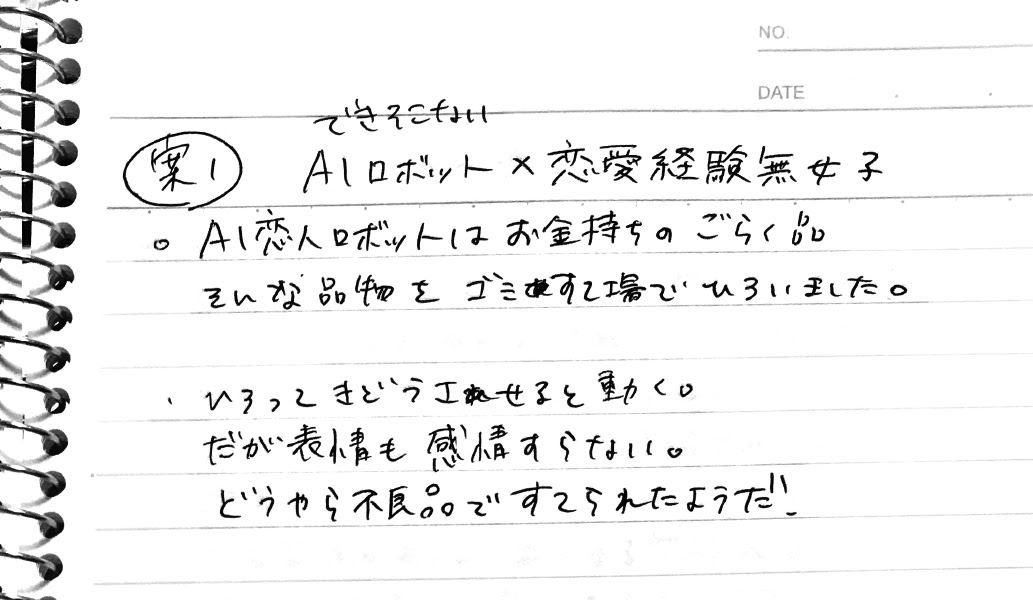 NO.
DATE
できそこない
案1 AIロボット×恋愛経験無女子
。AI恋人ロボットはお金持ちのごらく品
そんな品物をゴミすて場でひろいました。
・ひろってきどうさせると動く。
だが表情も感情すらない。
どうやら不良品ですてられたようだ!!